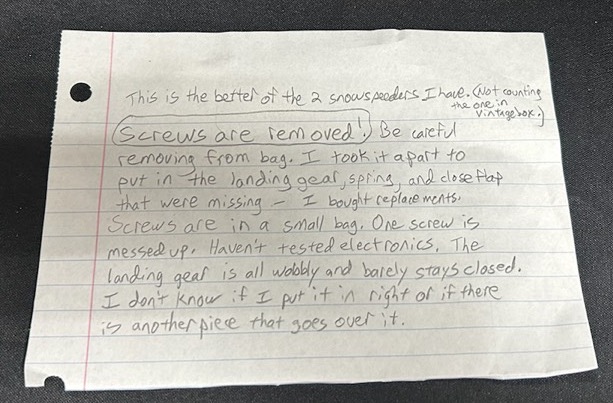 This is the better of the 2 snowspeeders I have. (Not counting
the one in
vintage box.)
Screws are removed! Be careful
removing from bag. I took it apart to
put in the landing gear, spring, and close flap
that were missing - I bought replacements.
Screws are in a small bag. One screw is
messed up. Haven't tested electronics. The
landing gear is all wobbly and barely stays closed.
I don't know if I put it in right or if there
is another piece that goes over it.